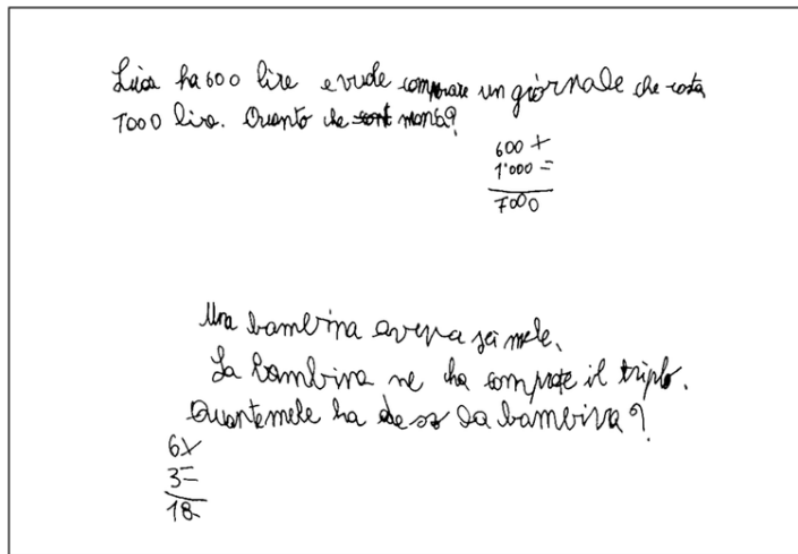 Luca ha 600 lire e vule comprare un giornale che costa
1000 lire. Quanto che manca?
600 +
1'000 =
7000
Una bambina aveva sei mele.
La bambina ne ha comprate il triplo.
Quante mele ha adesso la bambina?
6 x
3 =
18